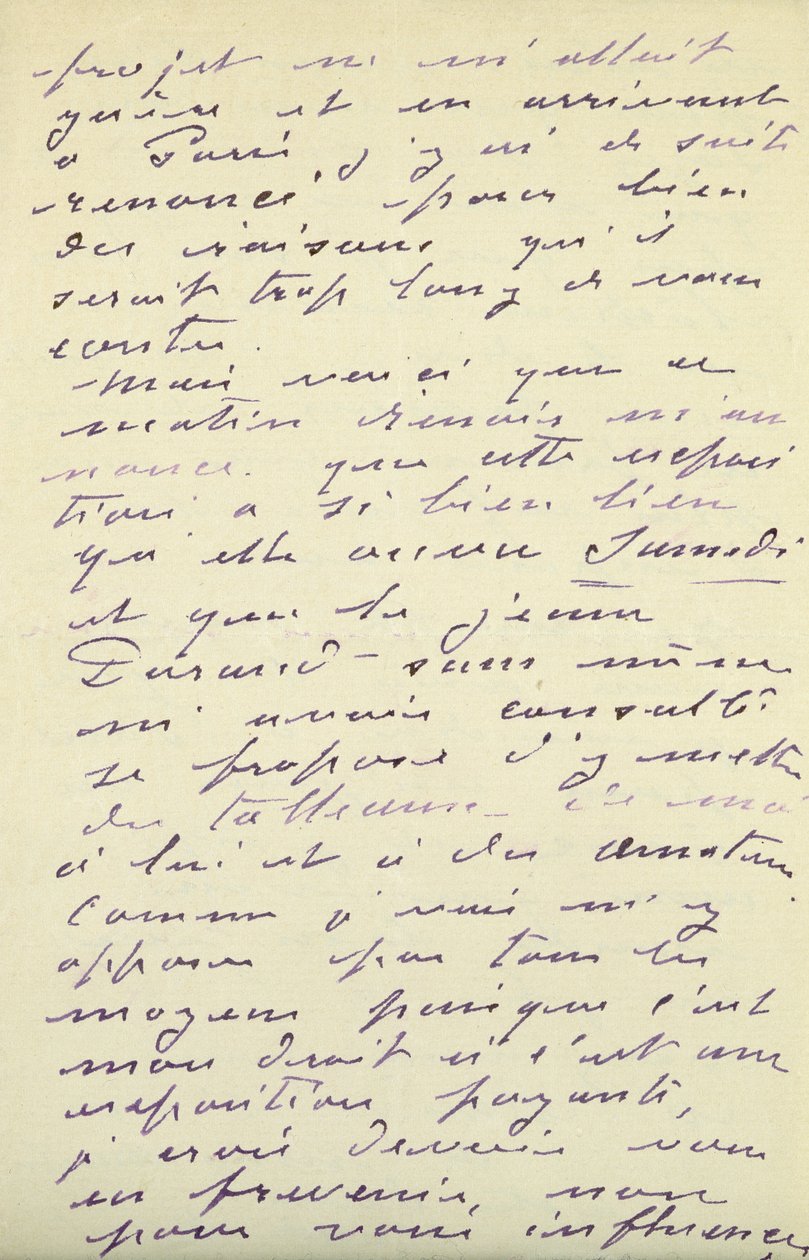 projet ne m'allait
guère et en arrivant
a Paris j'y ai de suite
renoncé pour bien
des raisons qu'il
serait trop long de vous
conter.
Mais voici que ce
matin Renoir m'an
nonce que cette exposi
tion a si bien lieu
qu'elle ouvre Samedi
et que le jeune
Durand – sans même
m'avoir consulté
se propose d'y mettre
des tableaux de moi
à lui et à des amateurs.
Comme je vais m'y
opposer par tous les
moyens puisque c'est
mon droit si c'est une
exposition payante,
je crois devoir vous
en prevenir, non
pour vous influencer